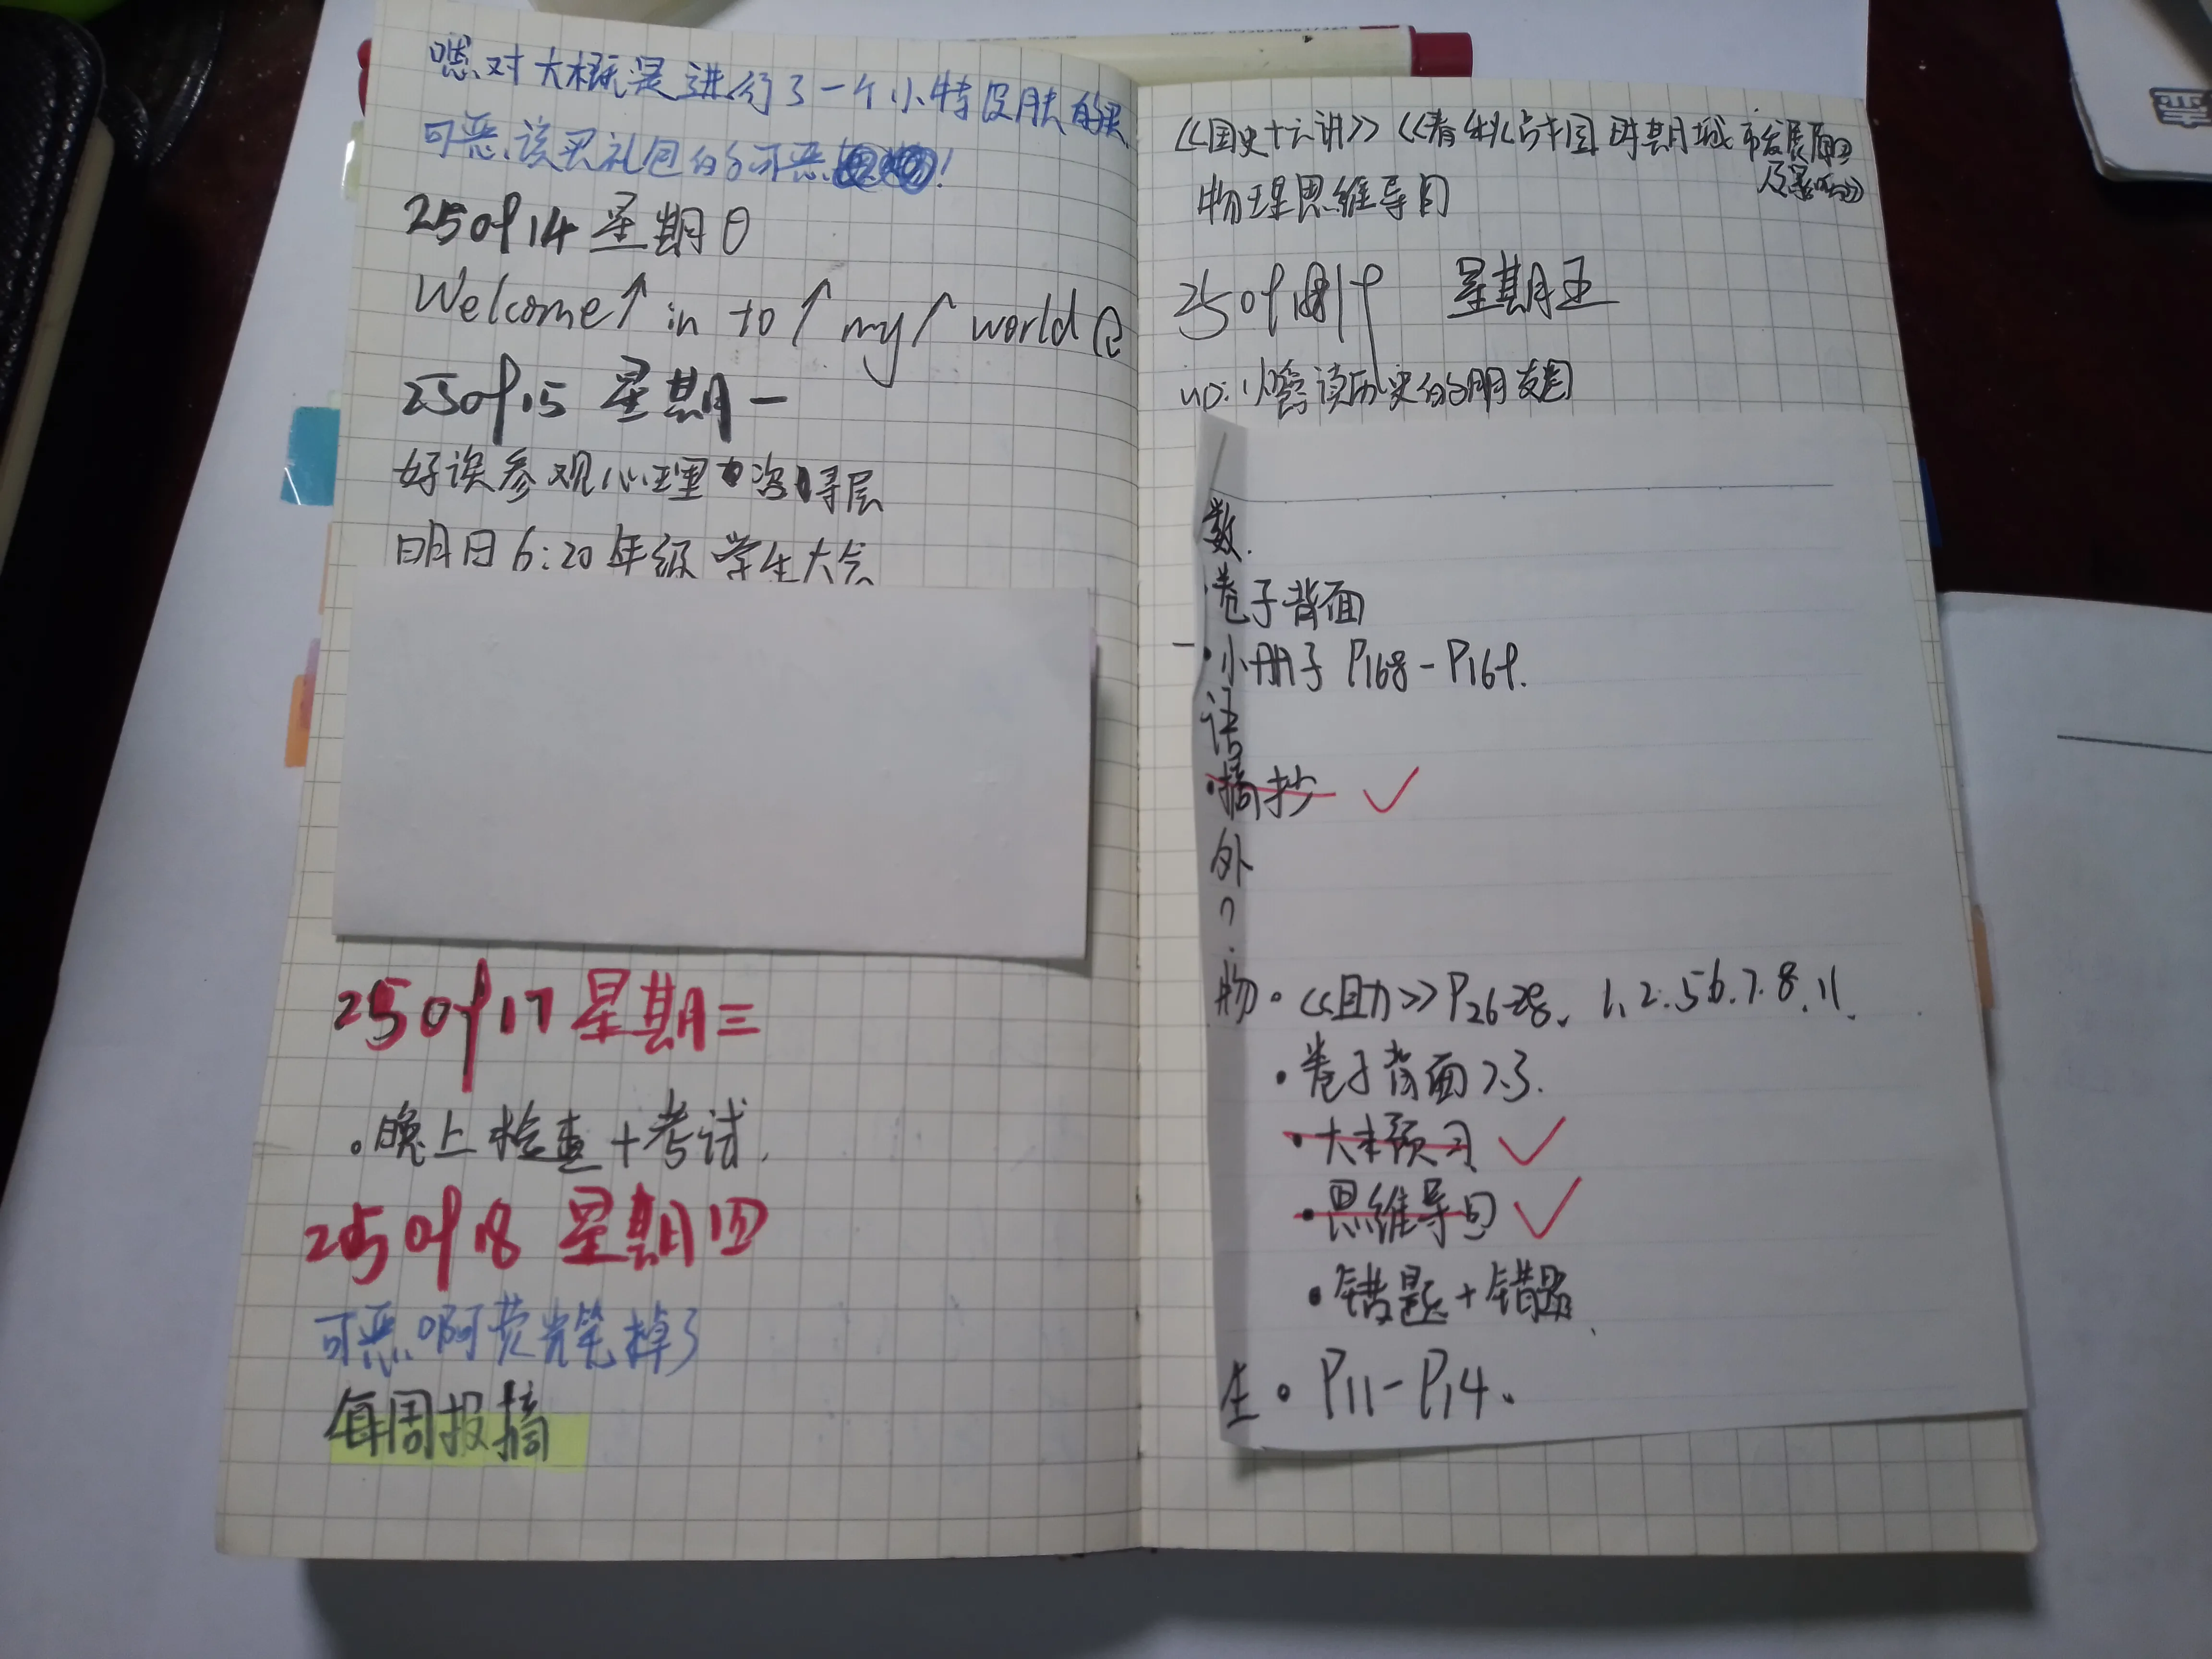 嗯对大概是进行了一个小特皮肤的买
可恶该买礼包的可恶!
250914 星期日
Welcome↑ in to↑ my↑ world
250915 星期一
好诶参观心理咨询层
明日6:20年级学生大会
250917 星期三
。晚上检查+考试.
250918 星期四
可恶啊荧光笔掉了
每周报摘
《国史十六讲》《春秋战国时期城市发展原因
及影响》
物理思维导图
250919 星期五
up:小宫读历史的朋友圈
数.
·卷子背面
·小册子 P168-P169.
语
·摘抄 ✓
外
物·《自助》P26-28、1、2.5 6.7.8.11.
·卷子背面 7.3.
·大本预习 ✓
·思维导图 ✓
·错题+错题
生。P11-P14.